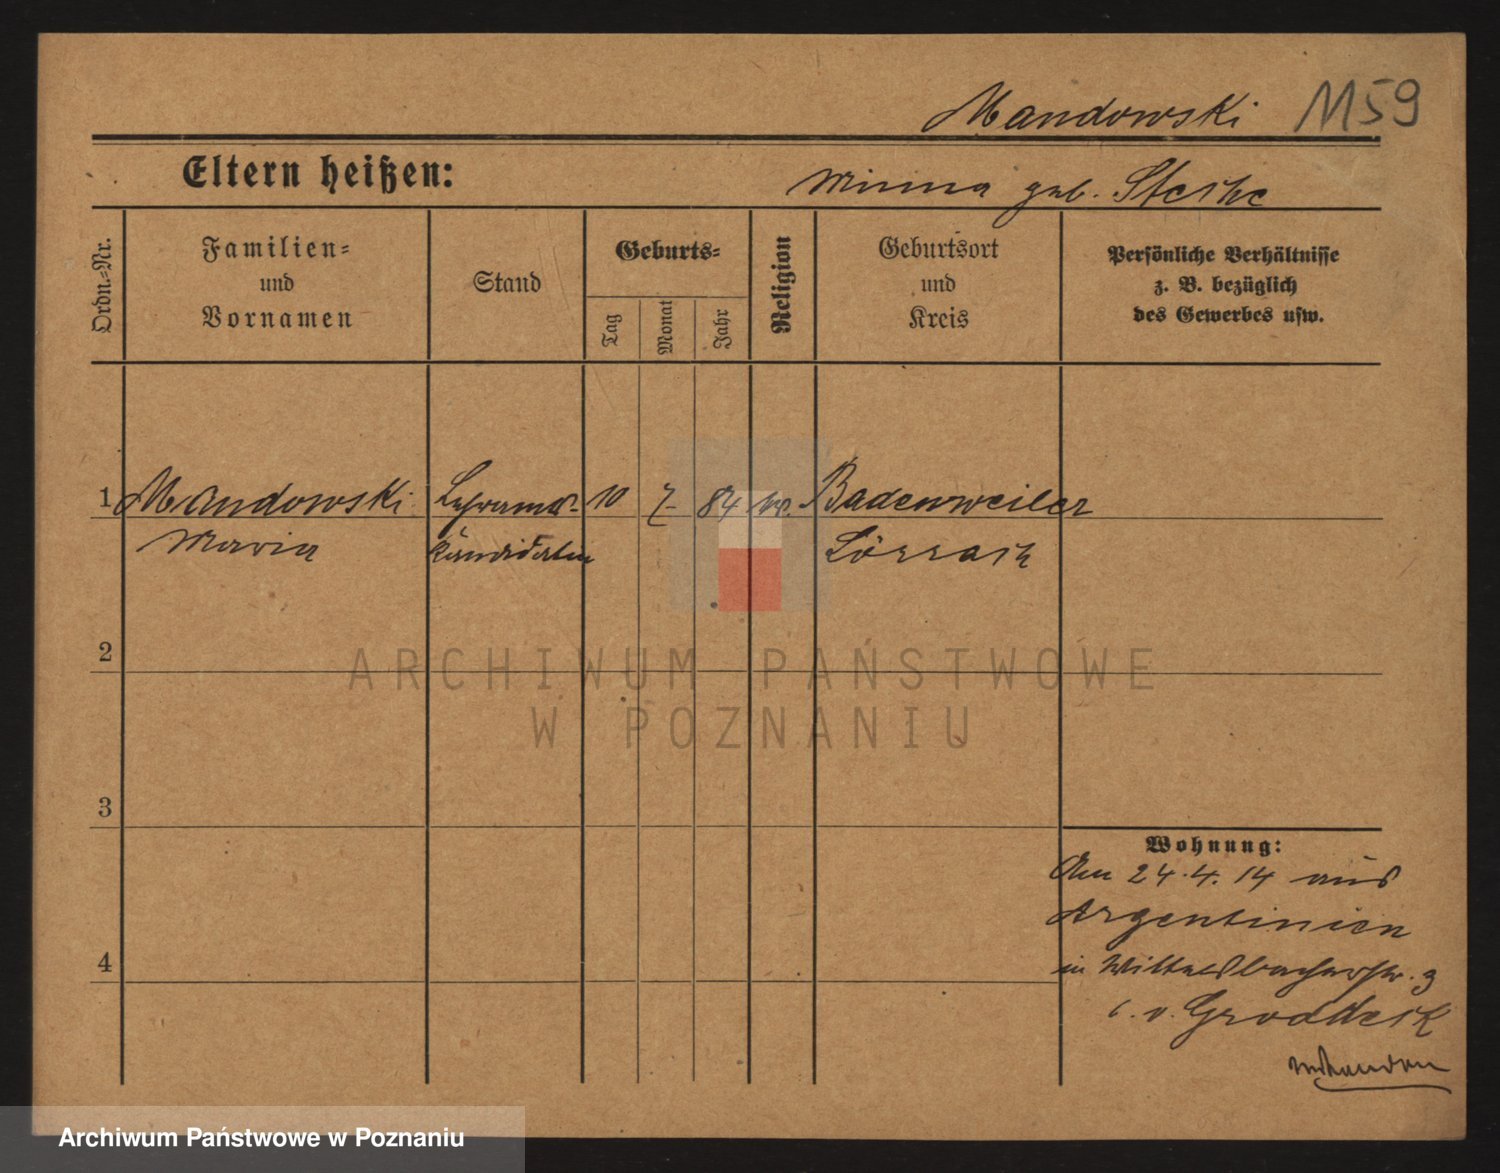 Mandowski 1159
Eltern heißen:
Minna geb. Steske
Ordn.=Nr.
Familien=
und
Vornamen
Stand
Geburts=
Tag
Monat
Jahr
Religion
Geburtsort
und
Kreis
Persönliche Verhältnisse
z. B. bezüglich
des Gewerbes usw.
1 Mandowski Lehramts- 10 7. 84 Badenweiler
Maria Kandidatin Lörrach
2
ARCHIWUM PAŃSTWOWE
W POZNANIU
3
Wohnung:
Am 24.4.14 aus
Argentinien
4
in 3
v. Groddeck
vorhanden
Archiwum Państwowe w Poznaniu